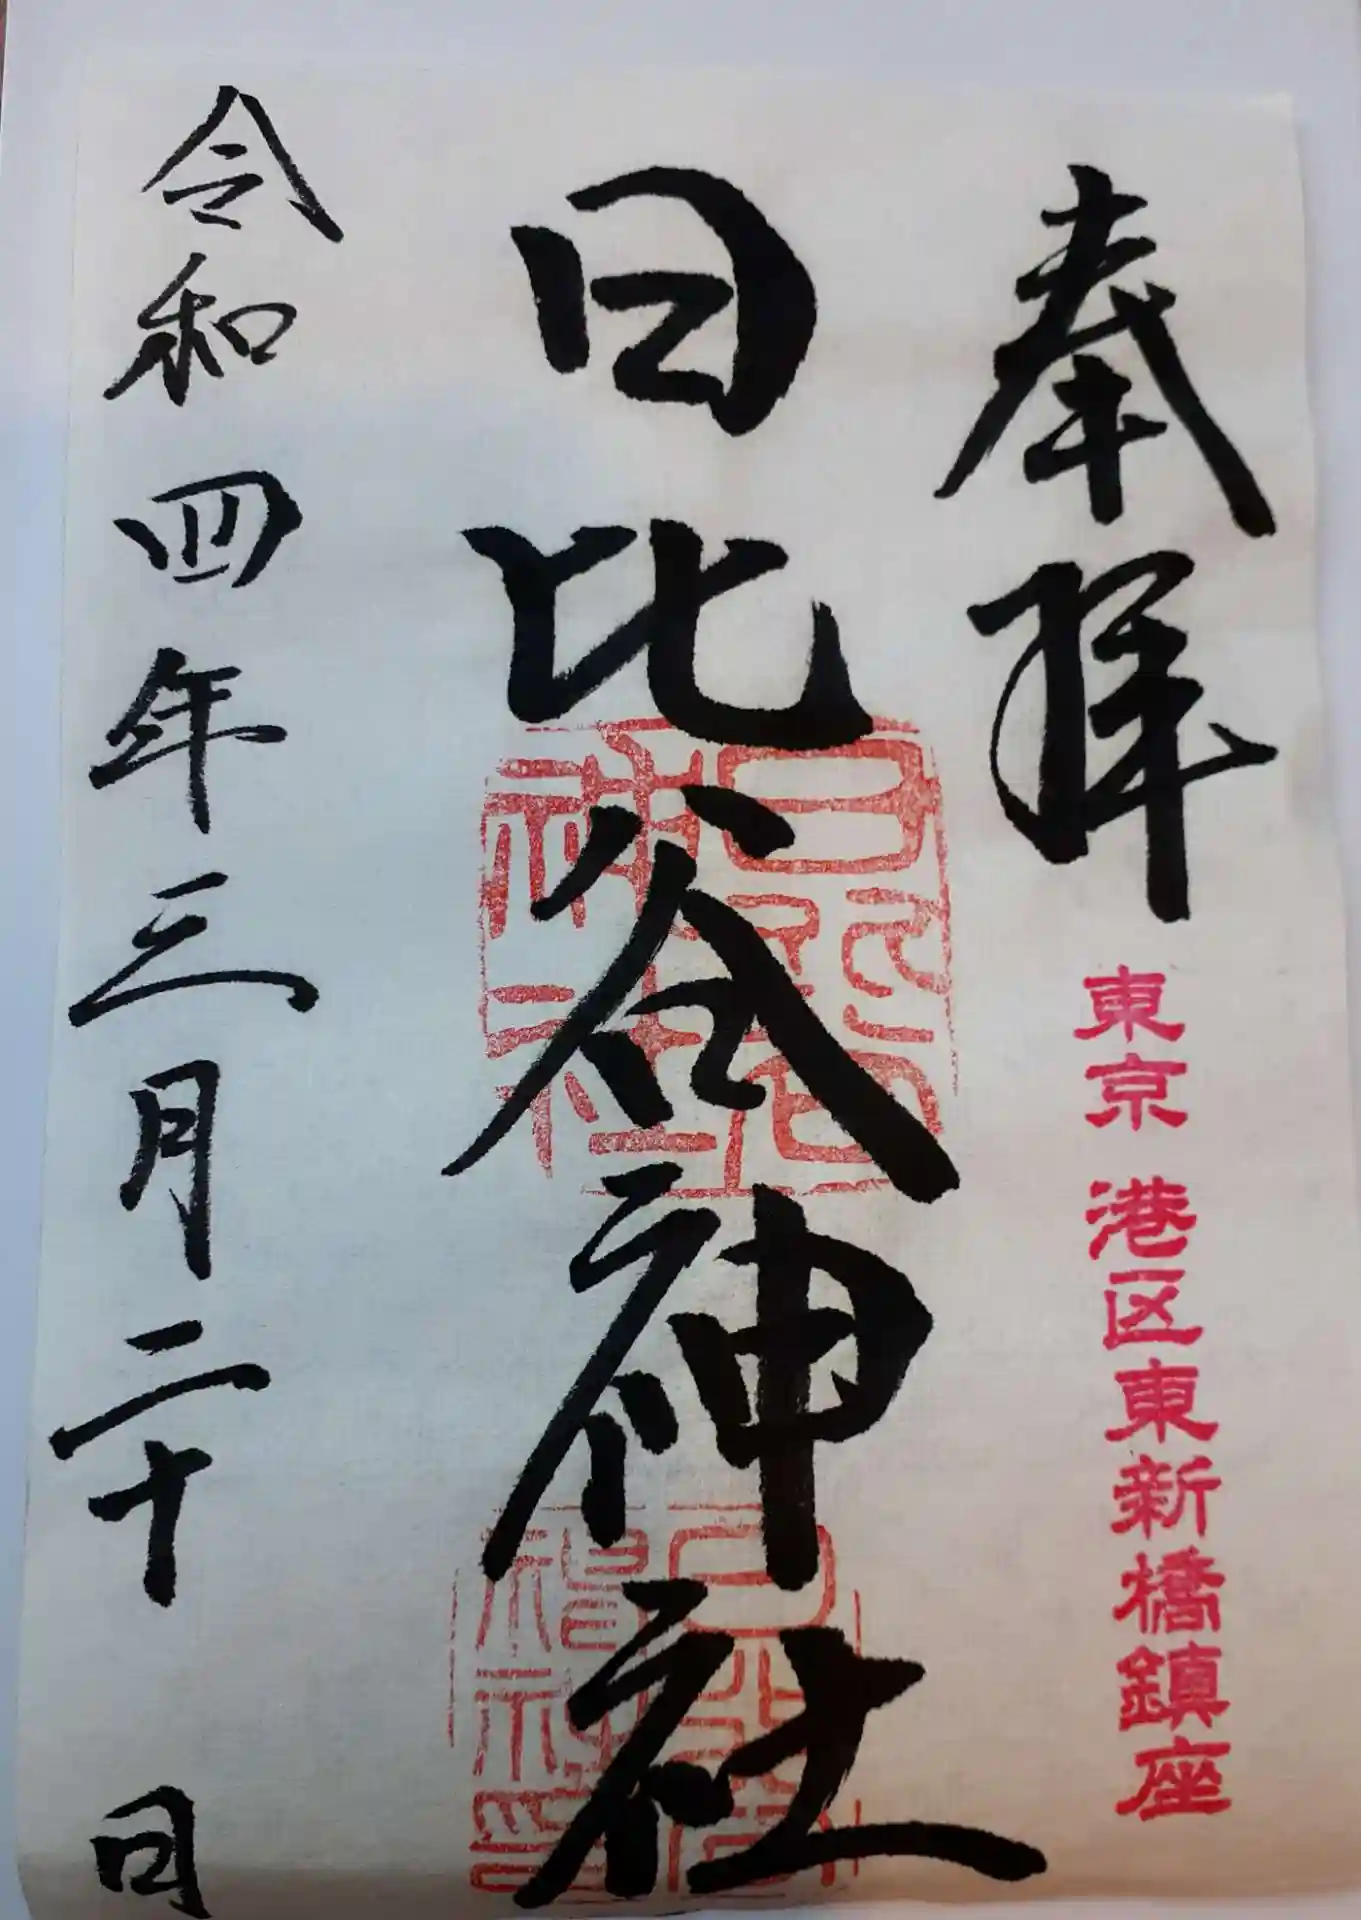 奉拝
東京 港区東新橋鎮座
日比谷神社
日比谷神社
令和四年三月二十 日